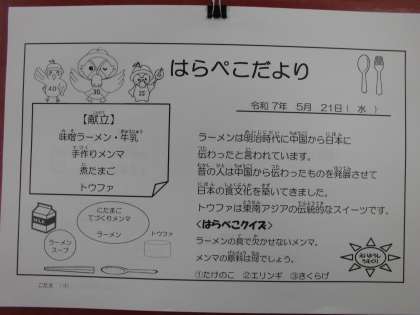 はらぺこだより
令和7年 5月 21日( 水 )
【献立】
味噌ラーメン・牛乳
手作りメンマ
煮たまご
トウファ
ラーメンは明治時代に中国から日本に
伝わったと言われています。
昔の人は中国から伝わったものを発展させて
日本の食文化を築いてきました。
トウファは東南アジアの伝統的なスイーツです。
<はらぺこクイズ>
ラーメンの具で欠かせないメンマ。
メンマの原料は何でしょう。
①たけのこ ②エリンギ ③きくらげ
にたまご
てづくりメンマ
ラーメン
ラーメン
スープ
トウファ